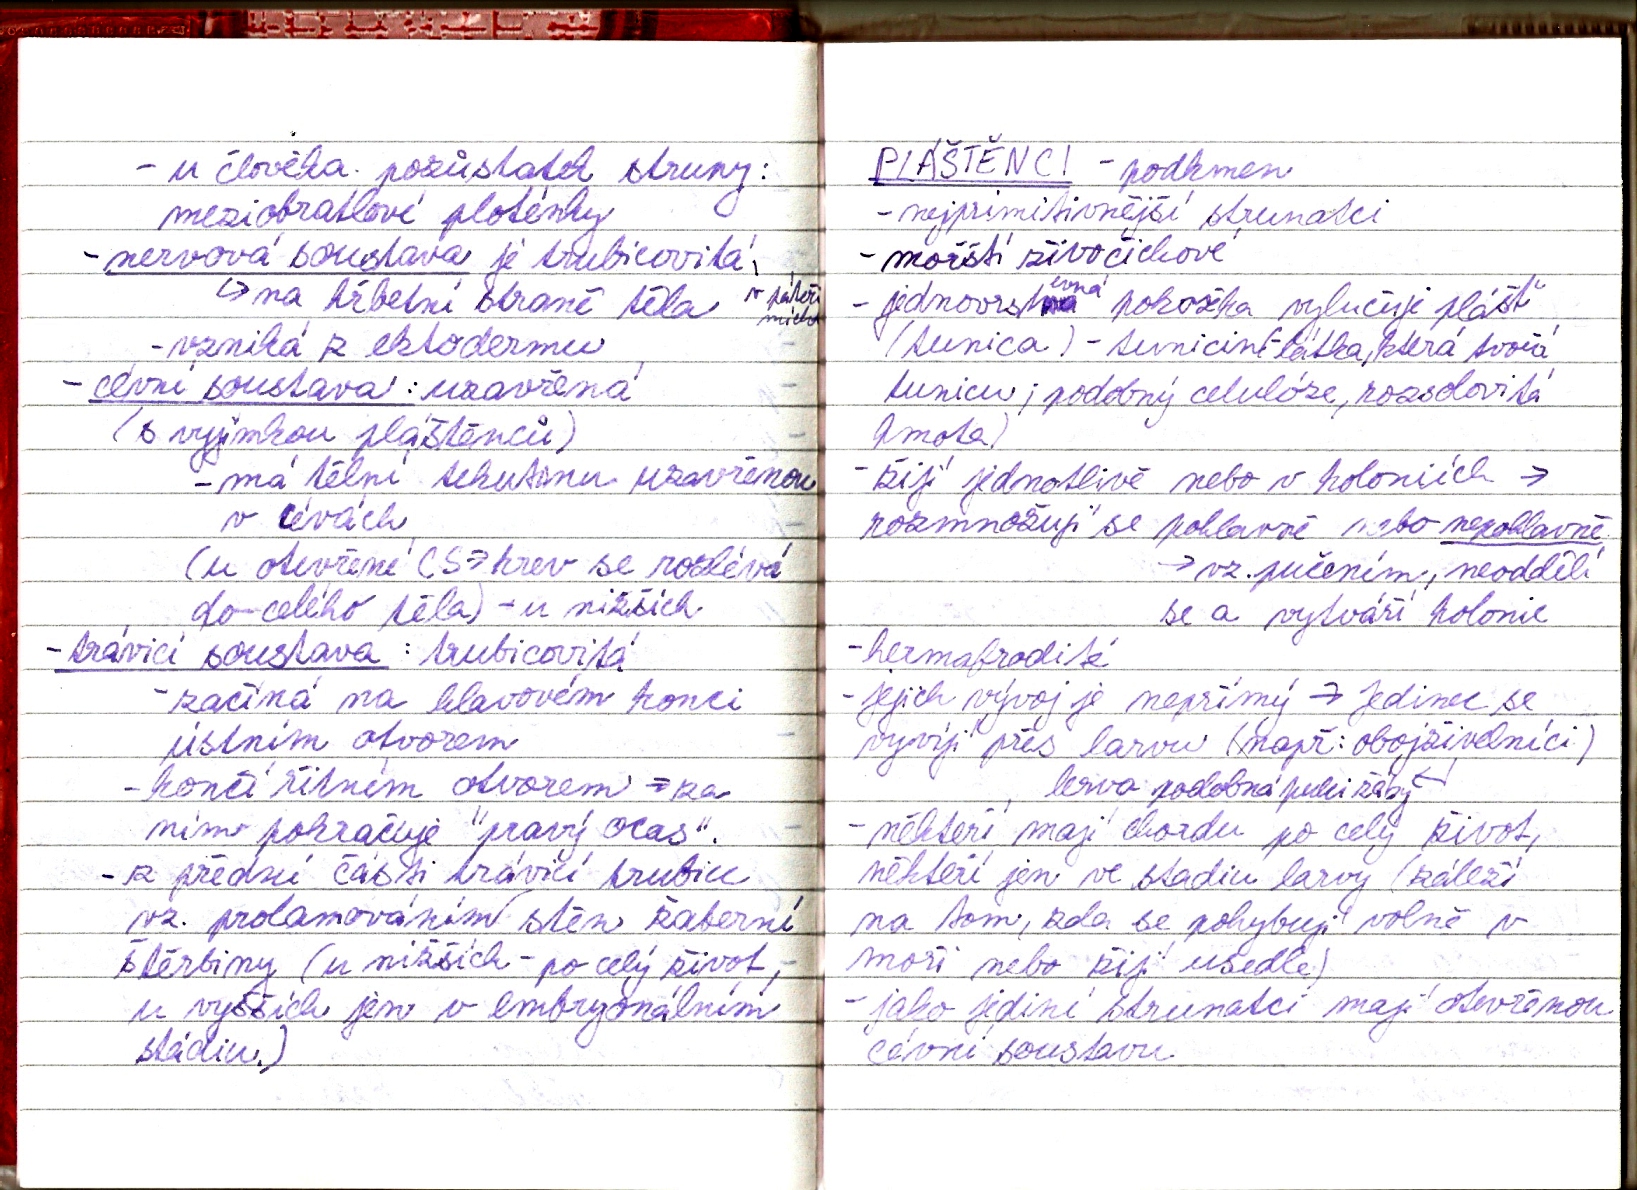 - u člověka pozůstatek struny:
meziobratlové ploténky
- nervová soustava je trubicovitá,
↳ na hřbetní straně těla v páteři
mícha
- vzniká z ektodermu
- cévní soustava: uzavřená
(s vyjímkou pláštěnců)
- má tělní tekutinu uzavřenou
v cévách
(u otevřené CS → krev se rozlévá
do celého těla) - u nižších
- trávicí soustava: trubicovitá
- začíná na hlavovém konci
ústním otvorem
- končí řitním otvorem → za
ním pokračuje "pravý ocas".
- z přední části trávicí trubice
vz. prolamováním stěn žaberní
štěrbiny (u nižších - po celý život,
u vyšších jen v embryonálním
stádiu.)
PLÁŠTĚNCI - podkmen
- nejprimitivnější strunatci
- mořští živočichové
- jednovrstevná pokožka vylučuje plášť
(tunica) - tunicin - látka, která tvoří
tunicu; podobný celulóze, rosolovitá
hmota)
- žijí jednotlivě nebo v koloniích →
rozmnožují se pohlavně nebo nepohlavně
→ vz. pučením, neoddělí
se a vytváří kolonie
- hermafrodité
- jejich vývoj je nepřímý → jedinec se
vyvíjí přes larvu (např: obojživelníci)
larva podobná pulci žáby ↵
- někteří mají chordu po celý život,
někteří jen ve stadiu larvy (záleží
na tom, zda se pohybují volně v
moři nebo žijí usedle)
- jako jediní strunatci mají otevřenou
cévní soustavu